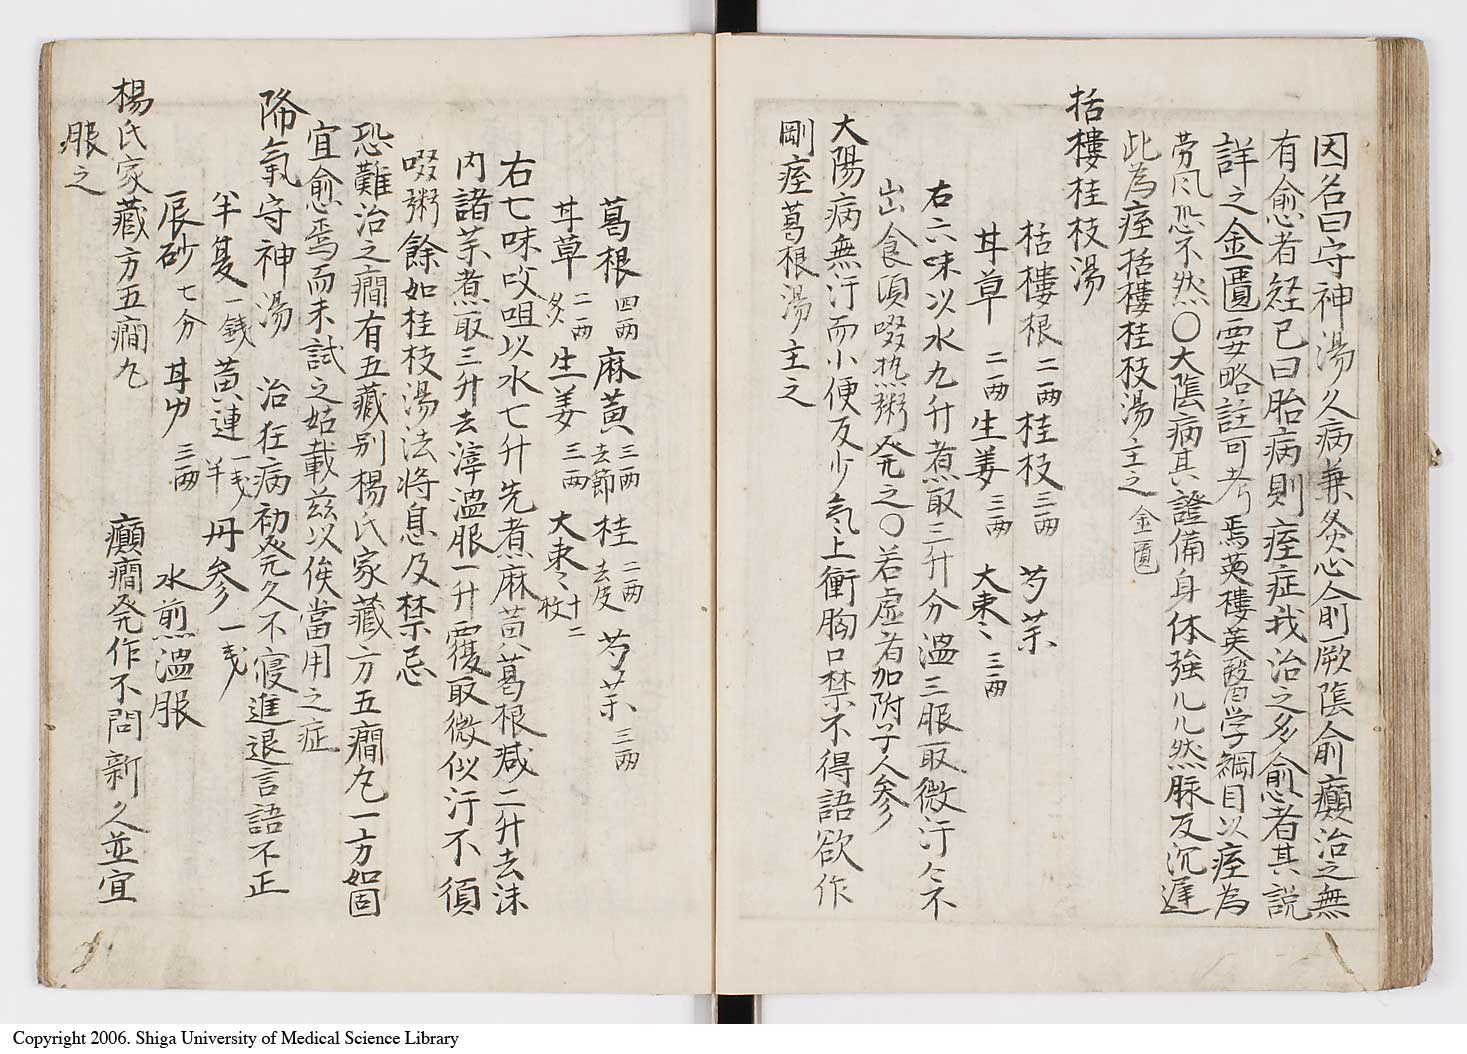 因名曰守神湯久病兼灸心俞厥陰俞癲治之無
有愈者経已曰胎病則痓症我治之多愈者其説
詳之金匱要略註可考焉英樓英醫学綱目以痓為
労风恐不然〇大陰病其證備身体強几几然脉反沉遅
此為痓括樓桂枝湯主之 金匱
括樓桂枝湯
栝樓根二两 桂枝三两 芍薬
甘草二两 生姜三两 大棗三两
右六味以水九升煮取三升分溫三服取微汗々不
出食頃啜热粥発之〇若虚者加附子人参
大陽病無汗而小便反少氣上衝胸口禁不得語欲作
剛痓葛根湯主之
葛根四两 麻黄三两去節 桂二两去皮 芍薬三两
甘草二两炙 生姜三两 大棗十二枚
右七味㕮咀以水七升先煮麻黄葛根减二升去沫
内諸薬煮取三升去滓溫服一升覆取微似汗不須
啜粥餘如桂枝湯法将息及禁忌
恐難治之癎有五藏别楊氏家藏方五癎丸一方如固
宜愈焉而未試之姑載兹以俟當用之症
降氣守神湯 治狂病初発久不寝進退言語不正
半夏一錢 黄連一戔半 丹参一戔
辰砂七分 甘艸三两 水煎溫服
楊氏家藏方五癎丸 癲癎発作不問新久並宜
服之
Copyright 2006. Shiga University of Medical Science Library